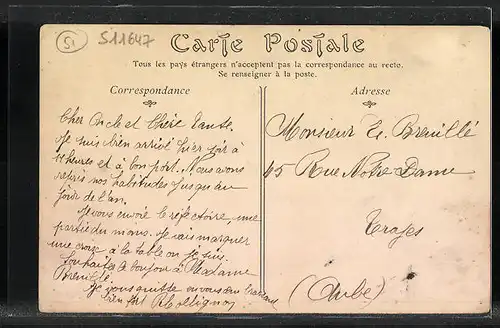 51
S11647
Carte Postale
Tous les pays étrangers n'acceptent pas la correspondance au recto.
Se renseigner à la poste.
Correspondance
Cher Oncle et Chère Tante.
Je suis bien arrivé hier soir à
heures et à bon port. Nous avons
repris nos habitudes jusqu'au
jour de l'an.
Je vous envoie le réfectoire, une
partie du moins. Je vais marquer
une croix à la table ou je suis.
Souhaitez le bonjour à Madame
Breuillé.
Je vous quitte en vous
bien fort
Adresse
Monsieur E. Breuillé
45 Rue Notre-Dame
Troyes
(Aube)